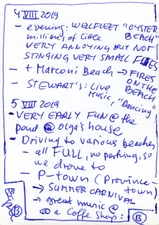 4 VIII 2019
- evening: WELLFLEET "OYSTER
BEACH"
millions of little
VERY ANNOYING BUT NOT
STINGING VERY SMALL FLIES
- + Marconi Beach → FIRES
ON THE
BEACH
- STEWART's: Live
Music "Dancing"
5 VIII 2019
- VERY EARLY FUN @ the
pond @ Olga's house
- Driving to various beaches,
all FULL, no parking, so
we drove to
- P-town (Province-
town) → SUMMER CARNIVAL
→ great music @
@ a Coffe Shop:
13
13